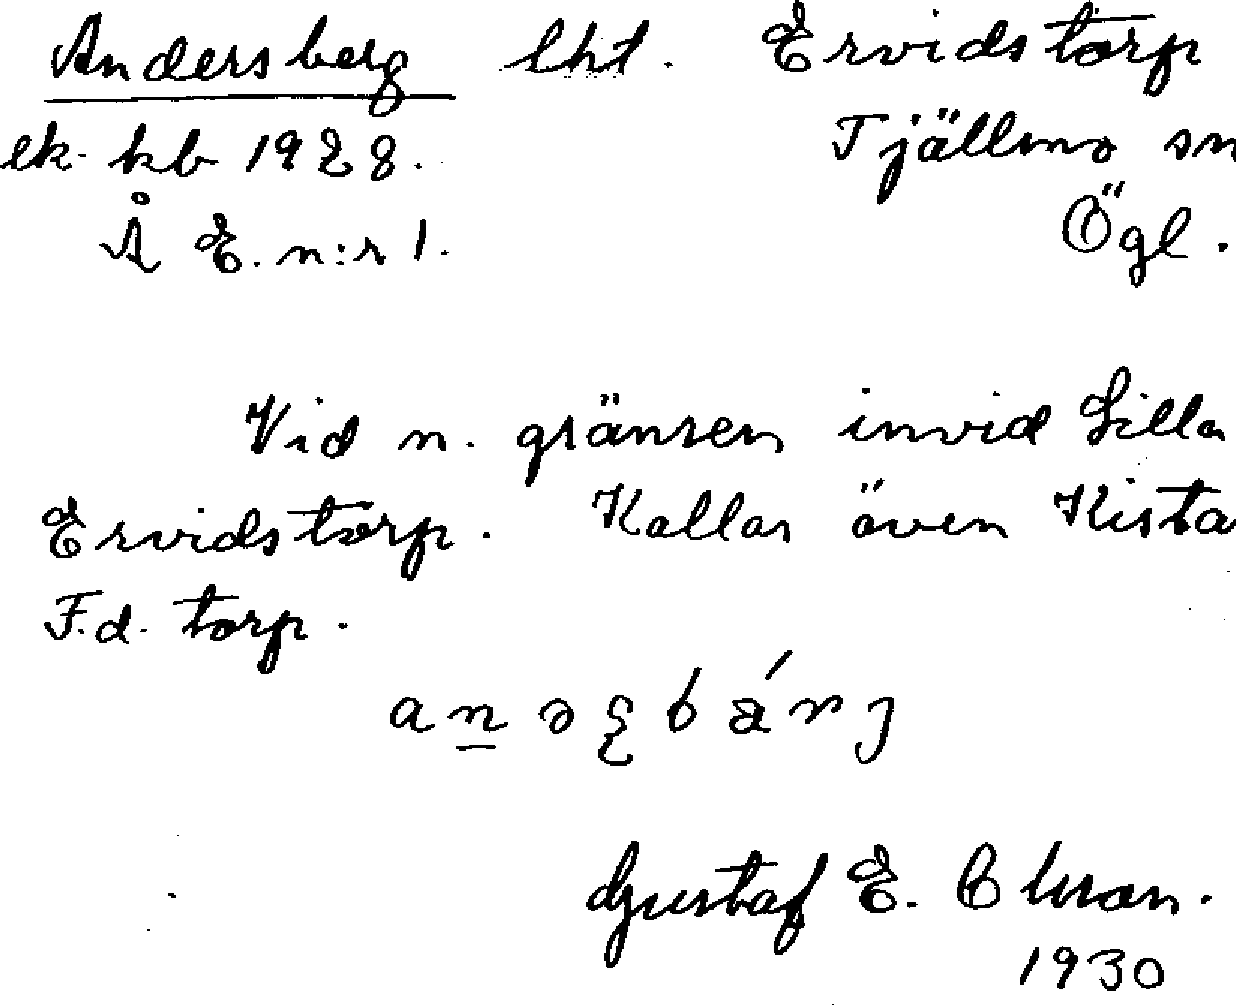 Andersberg lht. Ervidstorp
ek. kb 1928. Tjällmo sn
Å E. n:r 1. Ögl.
Vid n. gränsen invid Lilla
Ervidstorp. Kallas även Kista
F.d. torp.
Gustaf E.
1930